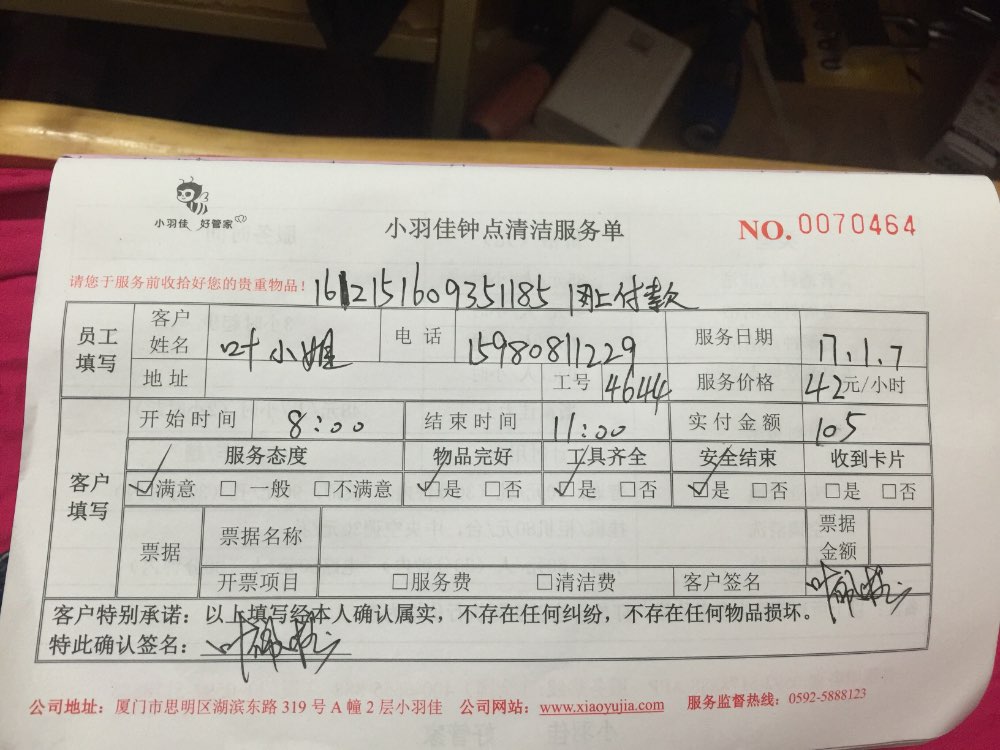 小羽佳 好管家
小羽佳钟点清洁服务单
NO. 0070464
请您于服务前收拾好您的贵重物品！
1612151609351185 网上付款
员工填写 客户姓名 叶小姐 电话 15980811229 服务日期 17.1.7
地址 工号 4644 服务价格 42元/小时
客户填写 开始时间 8:00 结束时间 11:00 实付金额 105
服务态度 物品完好 工具齐全 安全结束 收到卡片
☑满意 □一般 □不满意 ☑是 □否 ☑是 □否 ☑是 □否 □是 □否
票据 票据名称 票据金额
开票项目 □服务费 □清洁费 客户签名
客户特别承诺：以上填写经本人确认属实，不存在任何纠纷，不存在任何物品损坏。
特此确认签名：
公司地址：厦门市思明区湖滨东路319号A幢2层小羽佳 公司网站：www.xiaoyujia.com 服务监督热线：0592-5888123